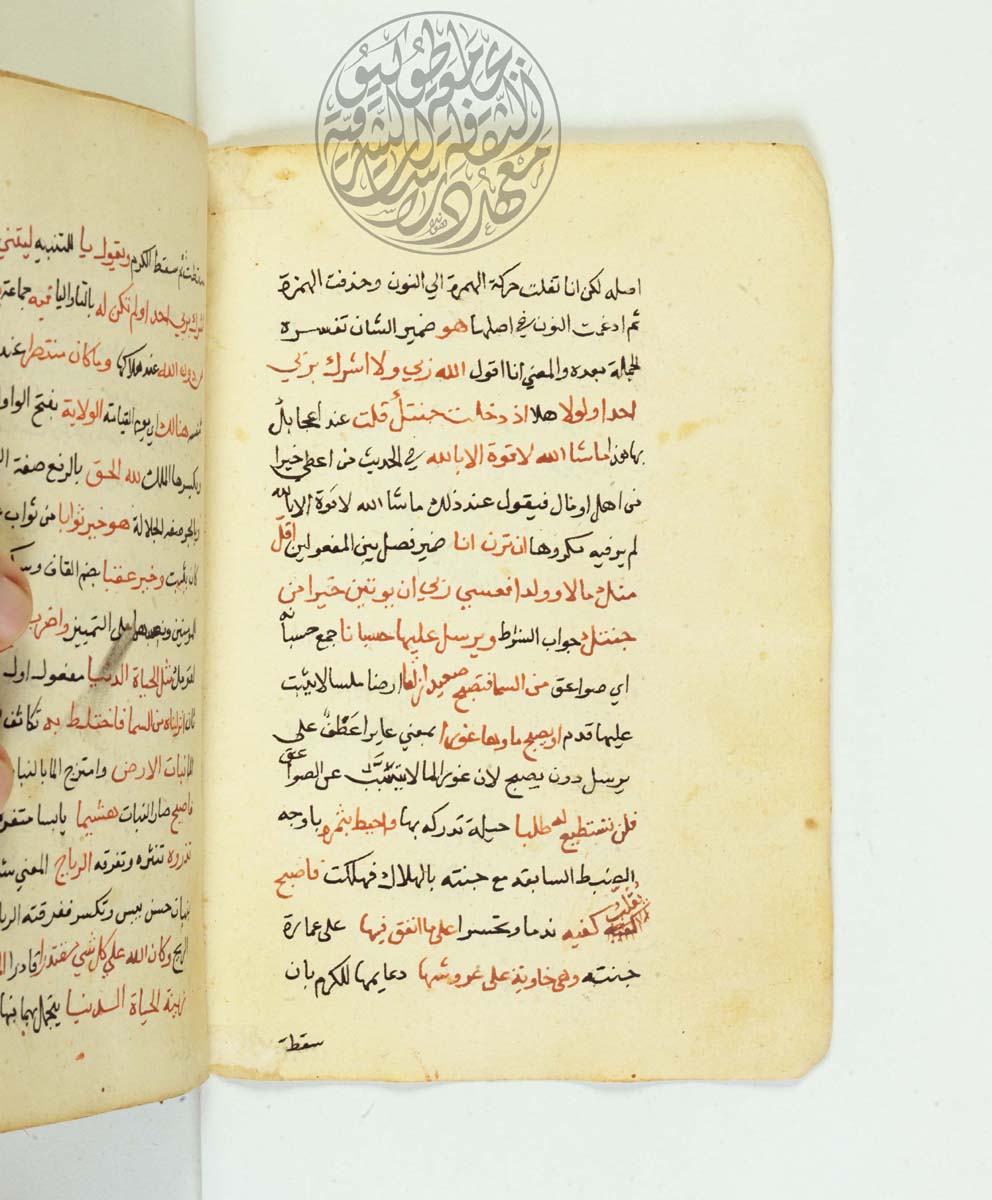 اصله لكن انا نقلت حركة الهمزة الي النون وحذفت الهمزة
ثم ادغمت النون في اصلها هو ضمير الشان تفسره
الجملة بعده والمعني انا اقول الله ربي ولا اشرك بربي
احدا ولولا هلا اذ دخلت جنتك قلت عند اعجابك
بها هذا ماشا الله لا قوة الا بالله في الحديث من اعطي خيرا
من اهل او مال فيقول عند ذلك ماشا الله لا قوة الا بالله
لم ير فيه مكروها ان ترن انا ضمير فصل بين المفعولين اقل
منك مالا وولدا فعسي ربي ان يوتين خيرا من
جنتك جواب الشرط ويرسل عليها حسبانا جمع حسبانه
اي صواعق من السما فتصبح صعيدا زلقا ارضا ملسا لا يثبت
عليها قدم او يصبح ماوها غورا بمعني غايرا عطف علي
يرسل دون يصبح لان غور الما لا يتسبب عن الصواعق
فلن تستطيع له طلبا حيلة تدركه بها واحيط بثمره باوجه
الضبط السابقه مع جنته بالهلاك فهلكت فاصبح
يقلب كفيه ندما وتحسرا علي ما انفق فيها علي عمارة
جنته وهي خاوية علي عروشها دعايمها للكرم بان
سقطة
سقطت ثم سقط الكرم ويقول يا للتنبيه ليتني
اشرك بربي احدا ولم تكن له بالتا واليا فيه جماعة
من دون الله عند هلاكها وما كان منتصرا عند
هنالك اي يوم القيامة الولاية بفتح الواو
وبكسرها الملك لله الحق بالرفع صفة
وبالجر صفة الجلالة هو خير ثوابا من ثواب
وخير عقبا بضم القاف
علي التمييز واضرب
مثل الحياة الدنيا مفعول اول
انزلناه من السما فاختلط به تكاثف
نبات الارض وامتزج الما بالنبات
فاصبح صار النبات هشيما يابسا
تذروه تنثره وتفرقه الرياح المعني
بنبات حسن يبس وتكسر ففرقته
الريح وكان الله علي كل شي مقتدرا قادرا
زينة الحياة الدنيا يتجمل بهما